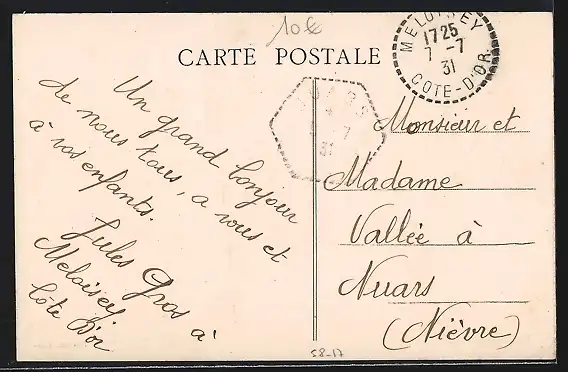 10€
CARTE POSTALE
MELOISEY
17 25
7 -7
31
COTE-D'OR
NUARS
-7
31
Un grand bonjour
de nous tous, a vous et
à vos enfants.
Jules Gros à
Meloisey
Côte d'or
Monsieur et
Madame
Vallée à
Nuars
(Nièvre)
58-17